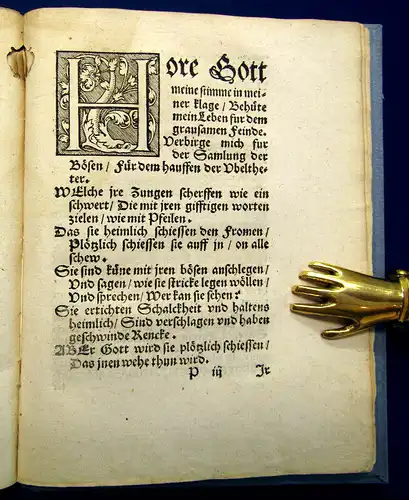 Höre Gott
meine stimme in mei-
ner klage / Behüte
mein Leben fur dem
grausamen Feinde.
Verbirge mich fur
der Samlung der
Bösen / Für dem hauffen der Vbelthe-
ter.
WElche jre Zungen scherffen wie ein
schwert / Die mit jren gifftigen worten
zielen / wie mit Pfeilen.
Das sie heimlich schiessen den Fromen /
Plötzlich schiessen sie auff jn / on alle
schew.
Sie sind küne mit jren bösen anschlegen /
Vnd sagen / wie sie stricke legen wöllen /
Vnd sprechen / Wer kan sie sehen?
Sie ertichten Schalckheit vnd haltens
heimlich / Sind verschlagen vnd haben
geschwinde Rencke.
ABEr Gott wird sie plötzlich schiessen /
Das jnen wehe thun wird.
P iij Jr